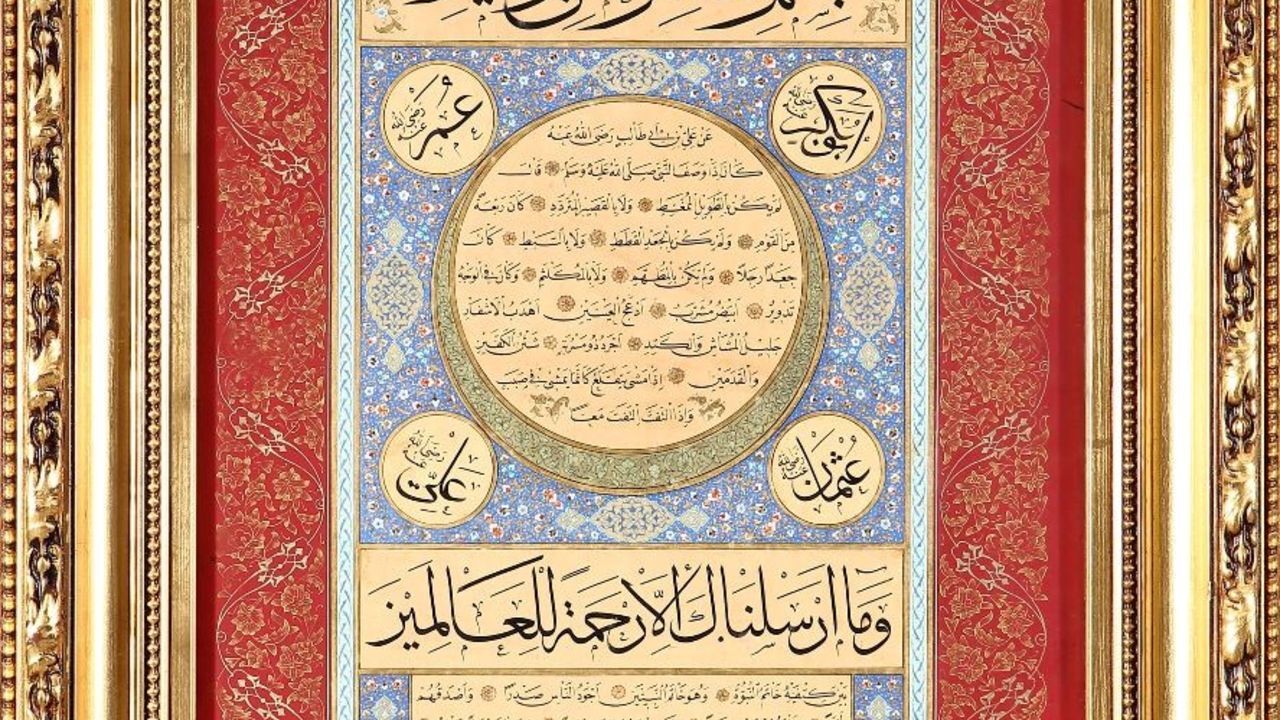 بسم
أبو بكر رضي الله عنه
عمر رضي الله عنه
عَنْ عَلِيِّ بْنِ أَبِي طَالِبٍ رَضِيَ اللهُ عَنْهُ
كَانَ إِذَا وَصَفَ النَّبِيَّ صَلَّى اللهُ عَلَيْهِ وَسَلَّمَ قَالَ
لَمْ يَكُنْ بِالطَّوِيلِ الْمُمَّغِطِ وَلَا بِالْقَصِيرِ الْمُتَرَدِّدِ كَانَ رَبْعَةً
مِنَ الْقَوْمِ وَلَمْ يَكُنْ بِالْجَعْدِ الْقَطَطِ وَلَا بِالسَّبِطِ كَانَ
جَعْدًا رَجِلًا وَلَمْ يَكُنْ بِالْمُطَهَّمِ وَلَا بِالْمُكَلْثَمِ وَكَانَ فِي الْوَجْهِ
تَدْوِيرٌ أَبْيَضُ مُشْرَبٌ أَدْعَجُ الْعَيْنَيْنِ أَهْدَبُ الْأَشْفَارِ
جَلِيلُ الْمُشَاشِ وَالْكَتَدِ أَجْرَدُ ذُو مَسْرُبَةٍ شَثْنُ الْكَفَّيْنِ
وَالْقَدَمَيْنِ إِذَا مَشَى يَتَقَلَّعُ كَأَنَّمَا يَمْشِي فِي صَبَبٍ
وَإِذَا الْتَفَتَ الْتَفَتَ مَعًا
عُثْمَان رضي الله عنه
عَلِيّ رضي الله عنه
وَمَا أَرْسَلْنَاكَ إِلَّا رَحْمَةً لِلْعَالَمِينَ
بَيْنَ كَتِفَيْهِ خَاتَمُ النُّبُوَّةِ وَهُوَ خَاتَمُ النَّبِيِّينَ أَجْوَدُ النَّاسِ صَدْرًا وَأَصْدَقُهُمْ